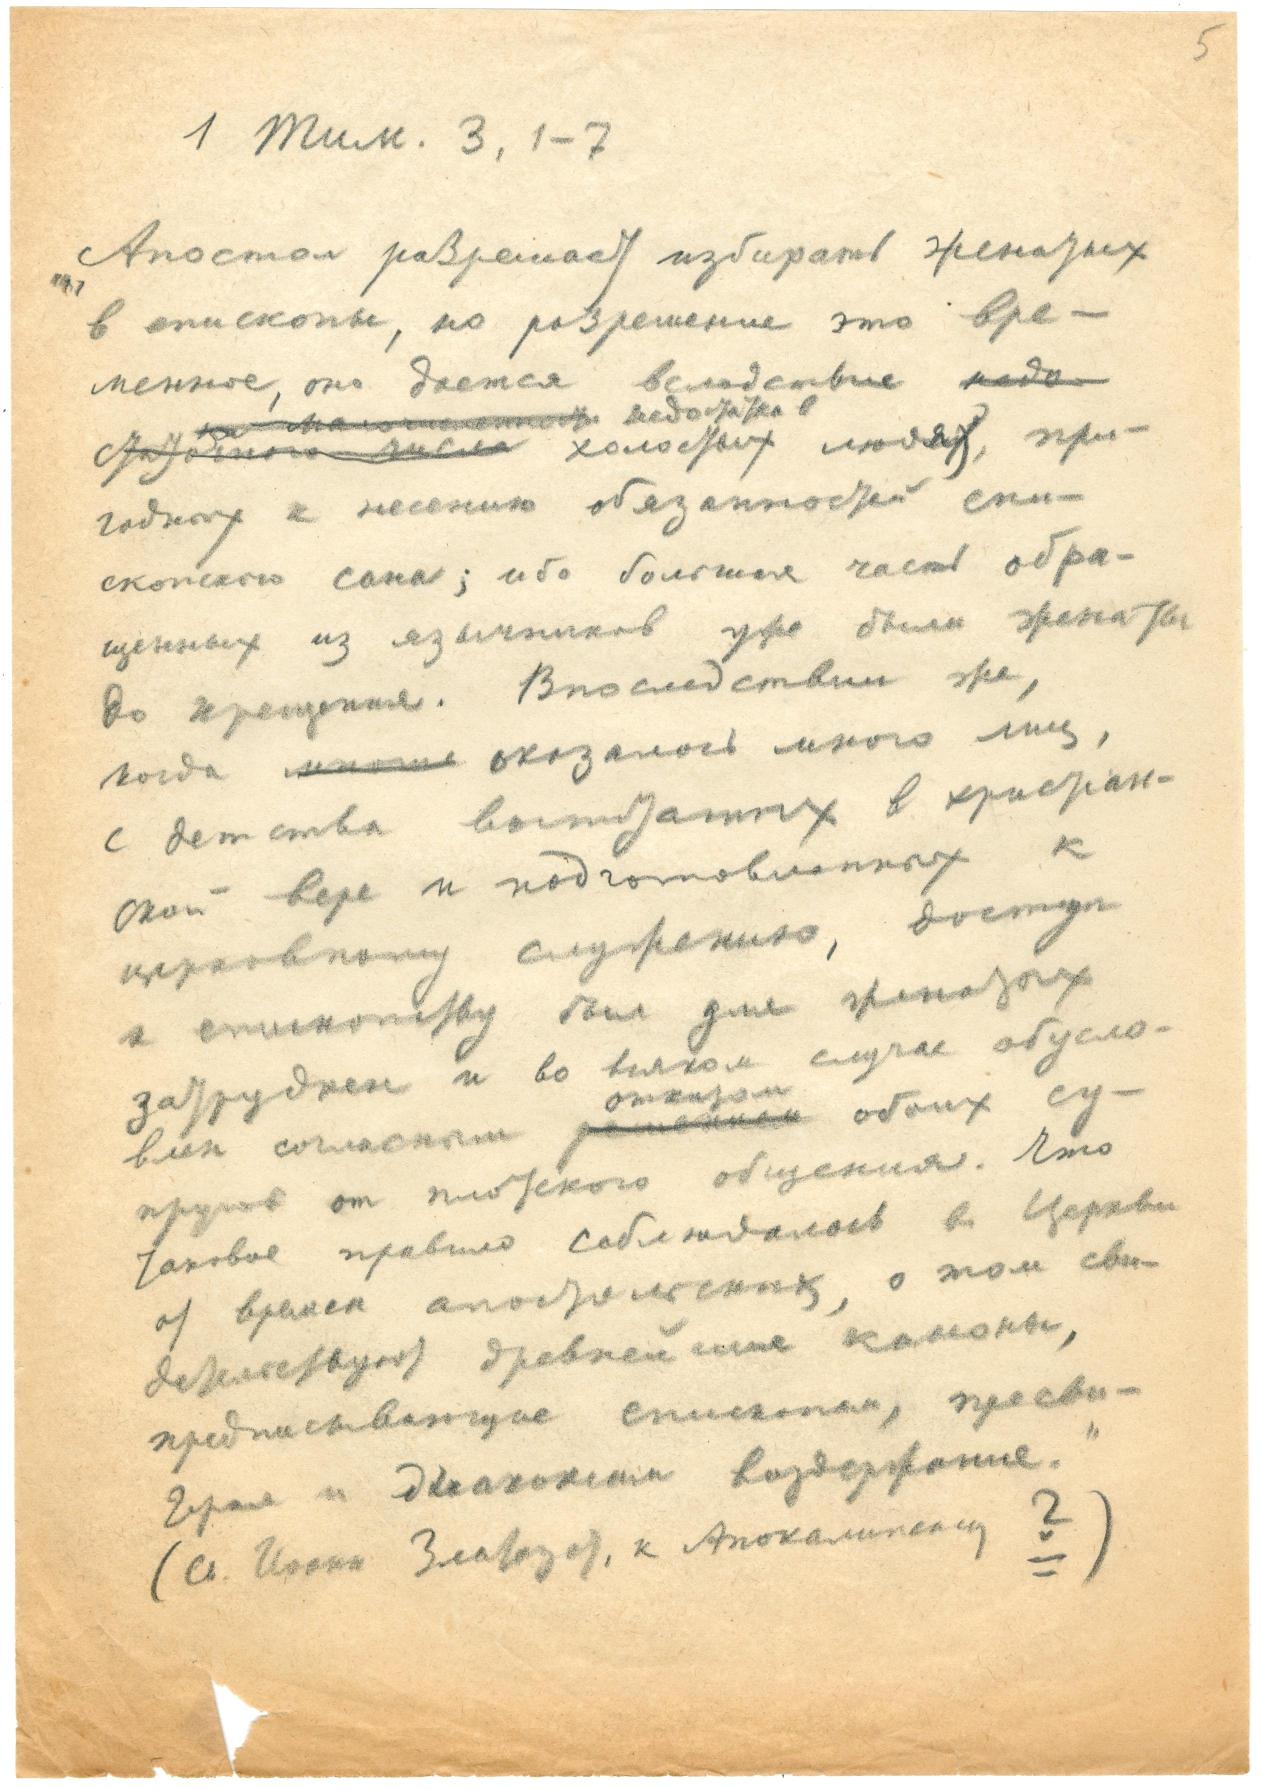 5
1 Тим. 3, 1-7
Апостол разрешает избирать женатых
в епископы, но разрешение это вре-
менное, оно дается вследствие недо-
недостатка в
статочного числа холостых людей, при-
годных к несению обязанностей епи-
скопского сана; ибо большая часть обра-
щенных из язычников уже были женаты
до крещения. Впоследствии же,
когда многие оказалось много лиц,
с детства воспитанных в христиан-
ской вере и подготовленных к
церковному служению, доступ
к епископству был для женатых
затруднен и во всяком случае обусло-
отказом
влен согласным решением обоих су-
пругов от плотского общения. Что
таковое правило соблюдалось в Церкви
от времен апостольских, о том сви-
детельствуют древнейшие каноны,
предписывающие епископам, пресви-
терам и диаконам воздержание."
(Св. Иоанн Златоуст, к Апокалипсису ?)